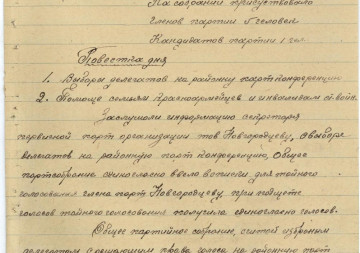 На собрании присутствовало
Членов партии 5 человек
Кандидатов партии 1 чел.
Повестка дня
1. Выборы делегатов на районну партконференцию
2. Помощь семьям красноармейцев и инвалидам от. войн.
Заслушали информацию секретаря
первичной парт организации тов Новгородцеву, о выборе
делегатов на районную парт конференцию. Общее
партсобрание единогласно ввело в списки для тайного
голосования члена парт Новгородцеву, при подщете
голосов тайного голосования получила единогласно голосов.
Общее партийное собрание, считай избраным
делегатом с решающим права голоса на районную парт